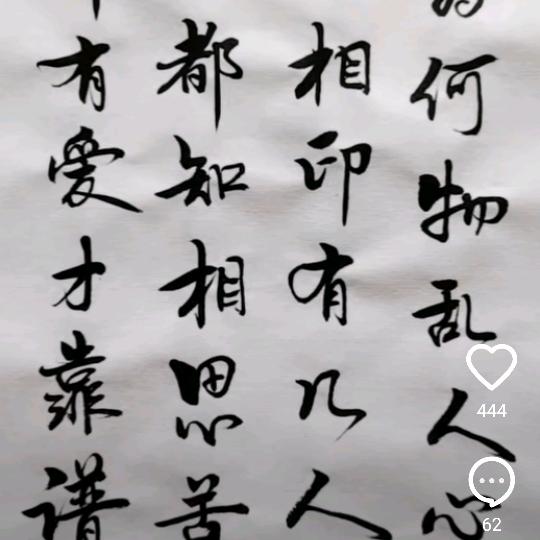 何物乱人心
相印有几人
都知相思苦
有爱才靠谱
444
62